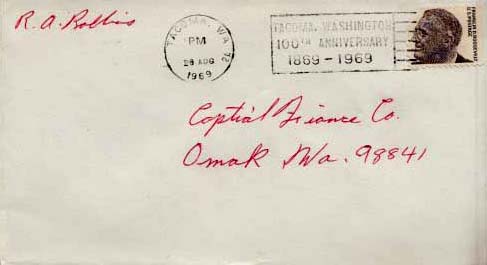 R. A. Rollins
TACOMA, WA
PM
28 AUG
1969
TACOMA, WASHINGTON
100TH ANNIVERSARY
1869-1969
FRANKLIN D. ROOSEVELT
Coptial Finance Co.
Omak Wa. 98841